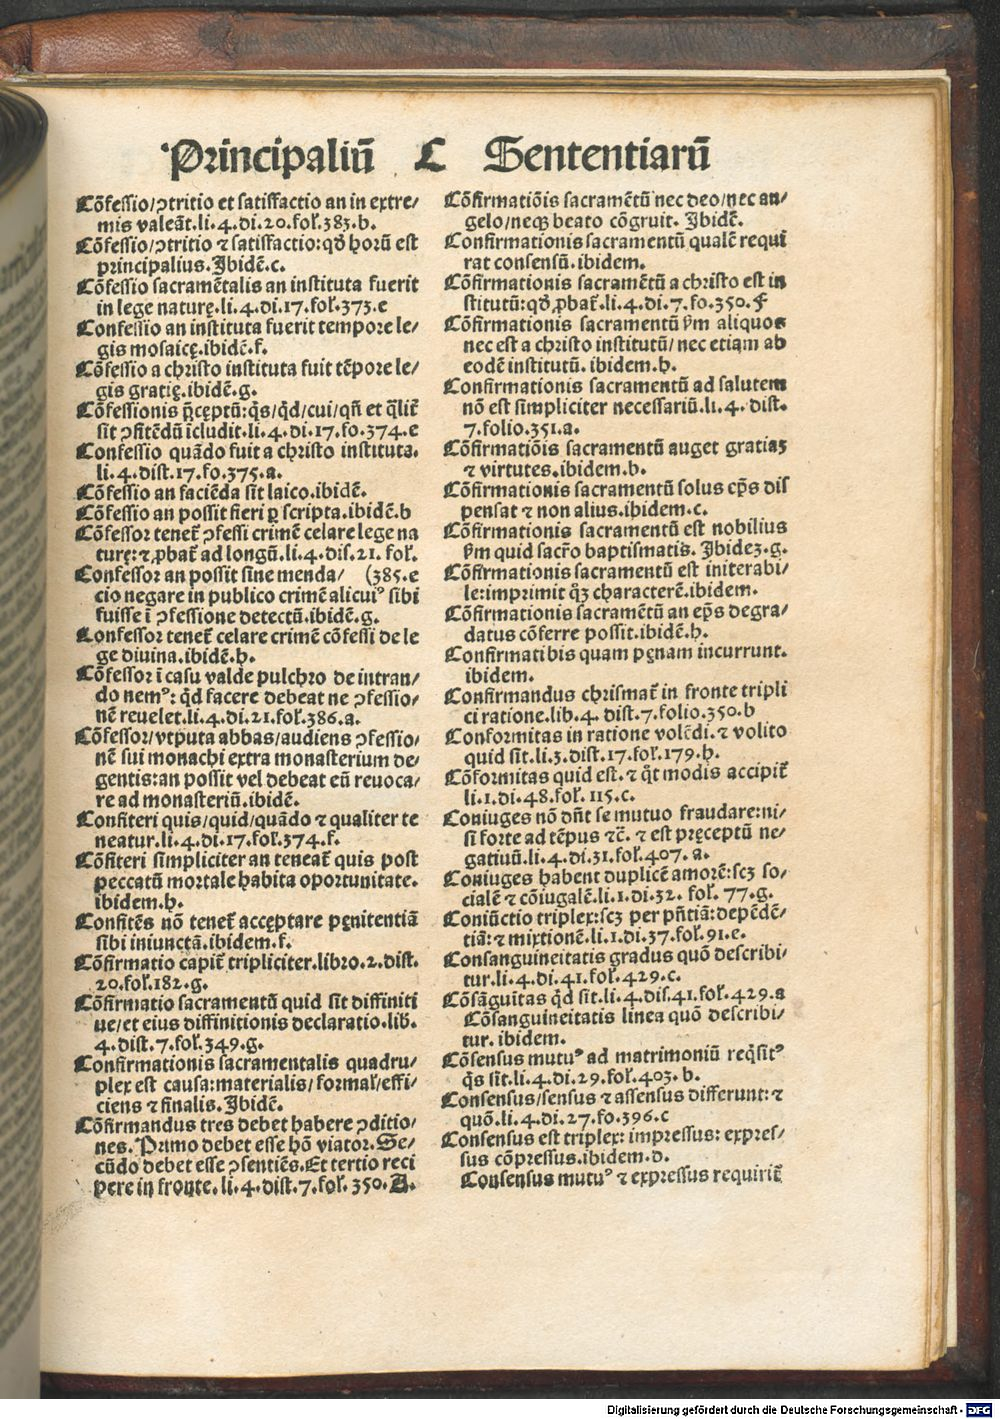 Principaliū C Sententiarū
Cōfessio/ꝯtritio et satisfactio an in extre/
mis valeāt.li.4.di.20.fol.383.b.
Cōfessio/ꝯtritio ⁊ satisfactio:qđ horū est
principalius.Ibidē.c.
Cōfessio sacramētalis an instituta fuerit
in lege naturę.li.4.di.17.fol.373.e
Confessio an instituta fuerit tempore le/
gis mosaicę.ibidē.f.
Cōfessio a christo instituta fuit tēpore le/
gis gratię.ibidē.g.
Cōfessionis p̄ceptū:q̄s/q̄d/cui/qñ et q̄lit̄
sit ꝯfitēdū īcludit.li.4.di.17.fo.374.e
Confessio quādo fuit a christo instituta.
li.4.dist.17.fo.375.a.
Cōfessio an faciēda sit laico.ibidē.
Cōfessio an possit fieri ꝑ scripta.ibidē.h
Cōfessor tenet̄ ꝯfessi crimē celare lege na
turę:⁊ ꝓbat̄ ad longū.li.4.dis.21. fol.
Confessor an possit sine menda/ (385.e
cio negare in publico crimē alicuiꝰ sibi
fuisse ī ꝯfessione detectū.ibidē.g.
Confessor tenet̄ celare crimē cōfessi de le
ge diuina.ibidē.h.
Cōfessor ī casu valde pulchro de intran/
do nemꝰ: q̄d facere debeat ne ꝯfessio/
nē reuelet.li.4.di.21.fol.386.a.
Cōfessor/vtputa abbas/audiens ꝯfessio/
nē sui monachi extra monasterium de/
gentis:an possit vel debeat eū reuoca/
re ad monasteriū.ibidē.
Confiteri quis/quid/quādo ⁊ qualiter te
neatur.li.4.di.17.fol.374.f.
Cōfiteri simpliciter an teneat̄ quis post
peccatū mortale habita oportunitate.
ibidem.h.
Confitēs nō tenet̄ acceptare pęnitentiā
sibi iniunctā.ibidem.f.
Cōfirmatio capit̄ tripliciter.libro.2.dist.
20.fol.182.g.
Cōfirmatio sacramentū quid sit diffiniti
ue/et eius diffinitionis declaratio.lib.
4.dist.7.fol.349.g.
Confirmationis sacramentalis quadru/
plex est causa:materialis/formal/effi/
ciens ⁊ finalis.Ibidē.
Cōfirmandus tres debet habere ꝯditio/
nes. Primo debet esse hō viator.Se/
cūdo debet esse ꝯsentiēs.Et tertio reci
pere in fronte.li.4.dist.7.fol.350.A.
Cōfirmatiōis sacramētū nec deo/nec an/
gelo/neqꝫ beato cōgruit. Ibidē.
Confirmationis sacramentū qualē requi
rat consensū.ibidem.
Cōfirmationis sacramētū a christo est in
stitutū:qđ ꝓbat̄.li.4.di.7.fo.350.f
Cōfirmationis sacramentū ẜm aliquos
nec est a christo institutū/nec etiam ab
eodē institutū. ibidem.h.
Confirmationis sacramentū ad salutem
nō est simpliciter necessariū.li.4. dist.
7.folio.351.a.
Cōfirmatiōis sacramentū auget gratiaȝ
⁊ virtutes.ibidem.b.
Cōfirmationis sacramentū solus ep̄s dis
pensat ⁊ non alius.ibidem.c.
Cōfirmationis sacramentū est nobilius
ẜm quid sacr̄o baptismatis. Ibideȝ.g.
Cōfirmationis sacramentū est initerabi/
le:imprimit qꝫ characterē.ibidem.
Cōfirmationis sacramētū an ep̄s degra/
datus cōferre possit.ibidē.h.
Confirmatibis quam pęnam incurrunt.
ibidem.
Confirmandus chrismat̄ in fronte tripli
ci ratione.lib.4. dist.7.folio.350.b
Conformitas in ratione volēdi.⁊ volito
quid sit.li.3.dist.17.fol.179.h.
Cōformitas quid est.⁊ q̄t modis accipit̄
li.1.di.48.fol. 115.c.
Coniuges nō dn̄t se mutuo fraudare:ni/
si forte ad tēpus ⁊c̄. ⁊ est pręceptū ne/
gatiuū.li.4.di.31.fol.407. a.
Coniuges habent duplicē amorē:scȝ so/
cialē ⁊ cōiugalē.li.1.di.32. fol. 77.g.
Coniūctio triplex:scȝ per pn̄tiā:depēdē/
tiā:⁊ mixtionē.li.1.di.37.fol.91.e.
Consanguineitatis gradus quō describi/
tur.li.4.di.41.fol.429.c.
Cōsāguitas q̄d sit.li.4.dis.41.fol.429.a
Cōsanguineitatis linea quō describi/
tur. ibidem.
Cōsensus mutuꝰ ad matrimoniū req̄sitꝰ
q̄s sit.li.4.di.29.fol.403. b.
Consensus/sensus ⁊ assensus differunt:⁊
quō.li.4.di.27.fo.396.c
Consensus est triplex: impressus: expres/
sus cōpressus.ibidem.d.
Consensus mutuꝰ ⁊ expressus requirit̄
Digitalisierung gefördert durch die Deutsche Forschungsgemeinschaft - DFG